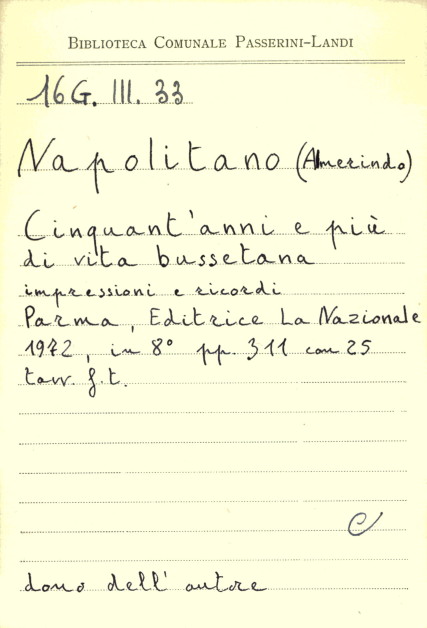 BIBLIOTECA COMUNALE PASSERINI-LANDI
16G. III. 33
Napolitano (Almerindo)
Cinquant'anni e più
di vita bussetana
impressioni e ricordi
Parma, Editrice La Nazionale
1972, in 8° pp. 311 con 25
tavv. f.t.
C
dono dell'autore